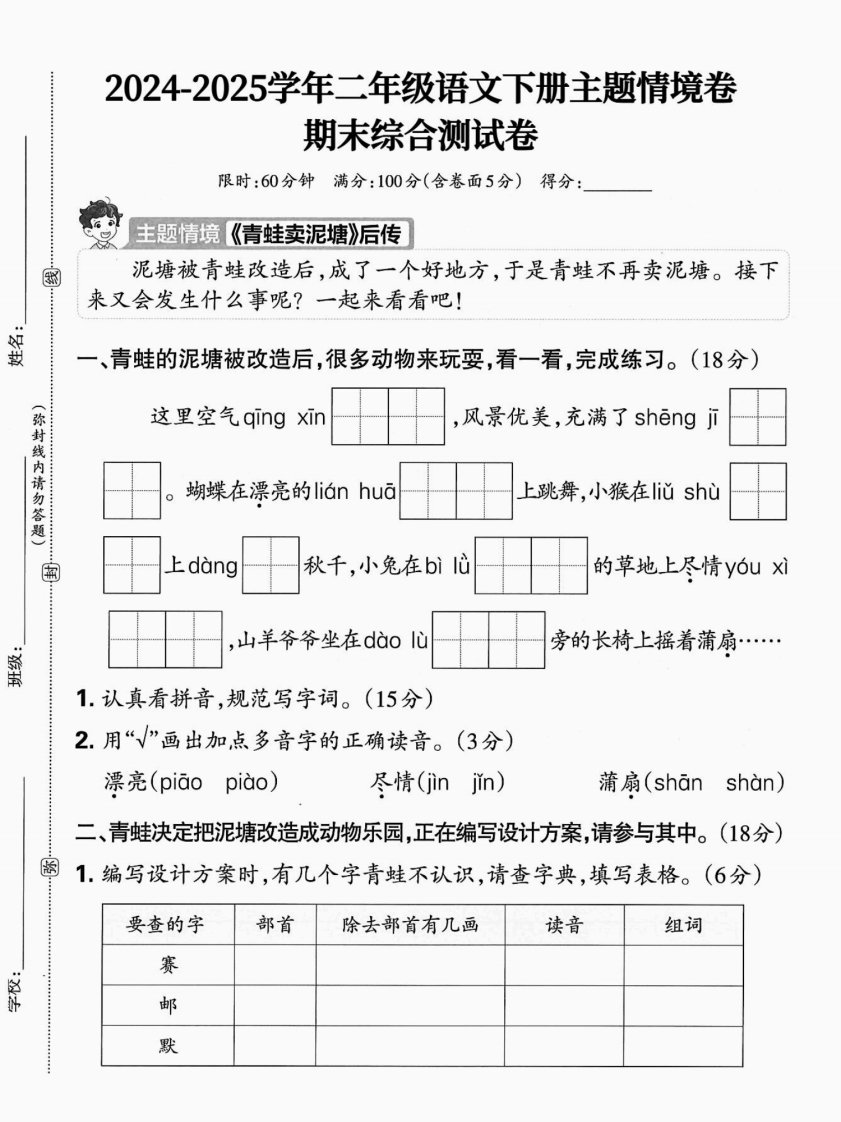 2024-2025学年二年级语文下册主题情境卷
期末综合测试卷
限时:60分钟 满分:100分(含卷面5分) 得分:________
主题情境《青蛙卖泥塘》后传
泥塘被青蛙改造后,成了一个好地方,于是青蛙不再卖泥塘。接下
来又会发生什么事呢?一起来看看吧!
一、青蛙的泥塘被改造后,很多动物来玩耍,看一看,完成练习。(18分)
这里空气qīng xīn ,风景优美,充满了shēng jī
。蝴蝶在漂亮的lián huā 上跳舞,小猴在liǔ shù
上dàng 秋千,小兔在bì lǜ 的草地上尽情yóu xì
,山羊爷爷坐在dào lù 旁的长椅上摇着蒲扇……
1. 认真看拼音,规范写字词。(15分)
2. 用“√”画出加点多音字的正确读音。(3分)
漂亮(piāo piào) 尽情(jìn jǐn) 蒲扇(shān shàn)
二、青蛙决定把泥塘改造成动物乐园,正在编写设计方案,请参与其中。(18分)
1. 编写设计方案时,有几个字青蛙不认识,请查字典,填写表格。(6分)
要查的字 部首 除去部首有几画 读音 组词
赛
邮
默
姓名:
班级:
学校:
(弥封线内请勿答题)
线
封
弥